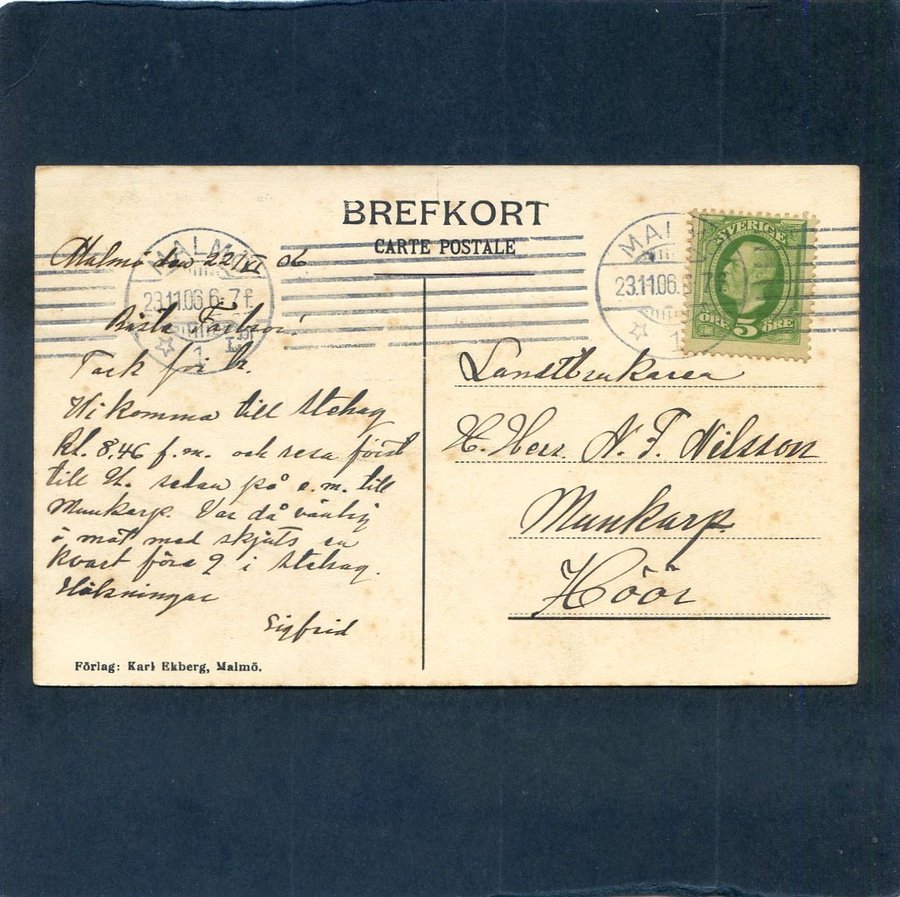 BREFKORT
CARTE POSTALE
MALMÖ
23.11.06.6-7 f.
1
L.Br.
MALMÖ
23.11.06.
1
SVERIGE
ÖRE 5 ÖRE
Malmö den 22/XI 06
Bästa Farbror!
Tack för k.
Vi komma till Stehag
kl. 8.46 f.m. och resa först
till H. sedan på e.m. till
Munkarp. Var då vänlig
o möt med skjuts en
kvart före 9 i Stehag.
Hälsningar
Sigfrid
Landtbrukaren
H. Herr. N. F. Nilsson
Munkarp.
Höör
Förlag: Karl Ekberg, Malmö.